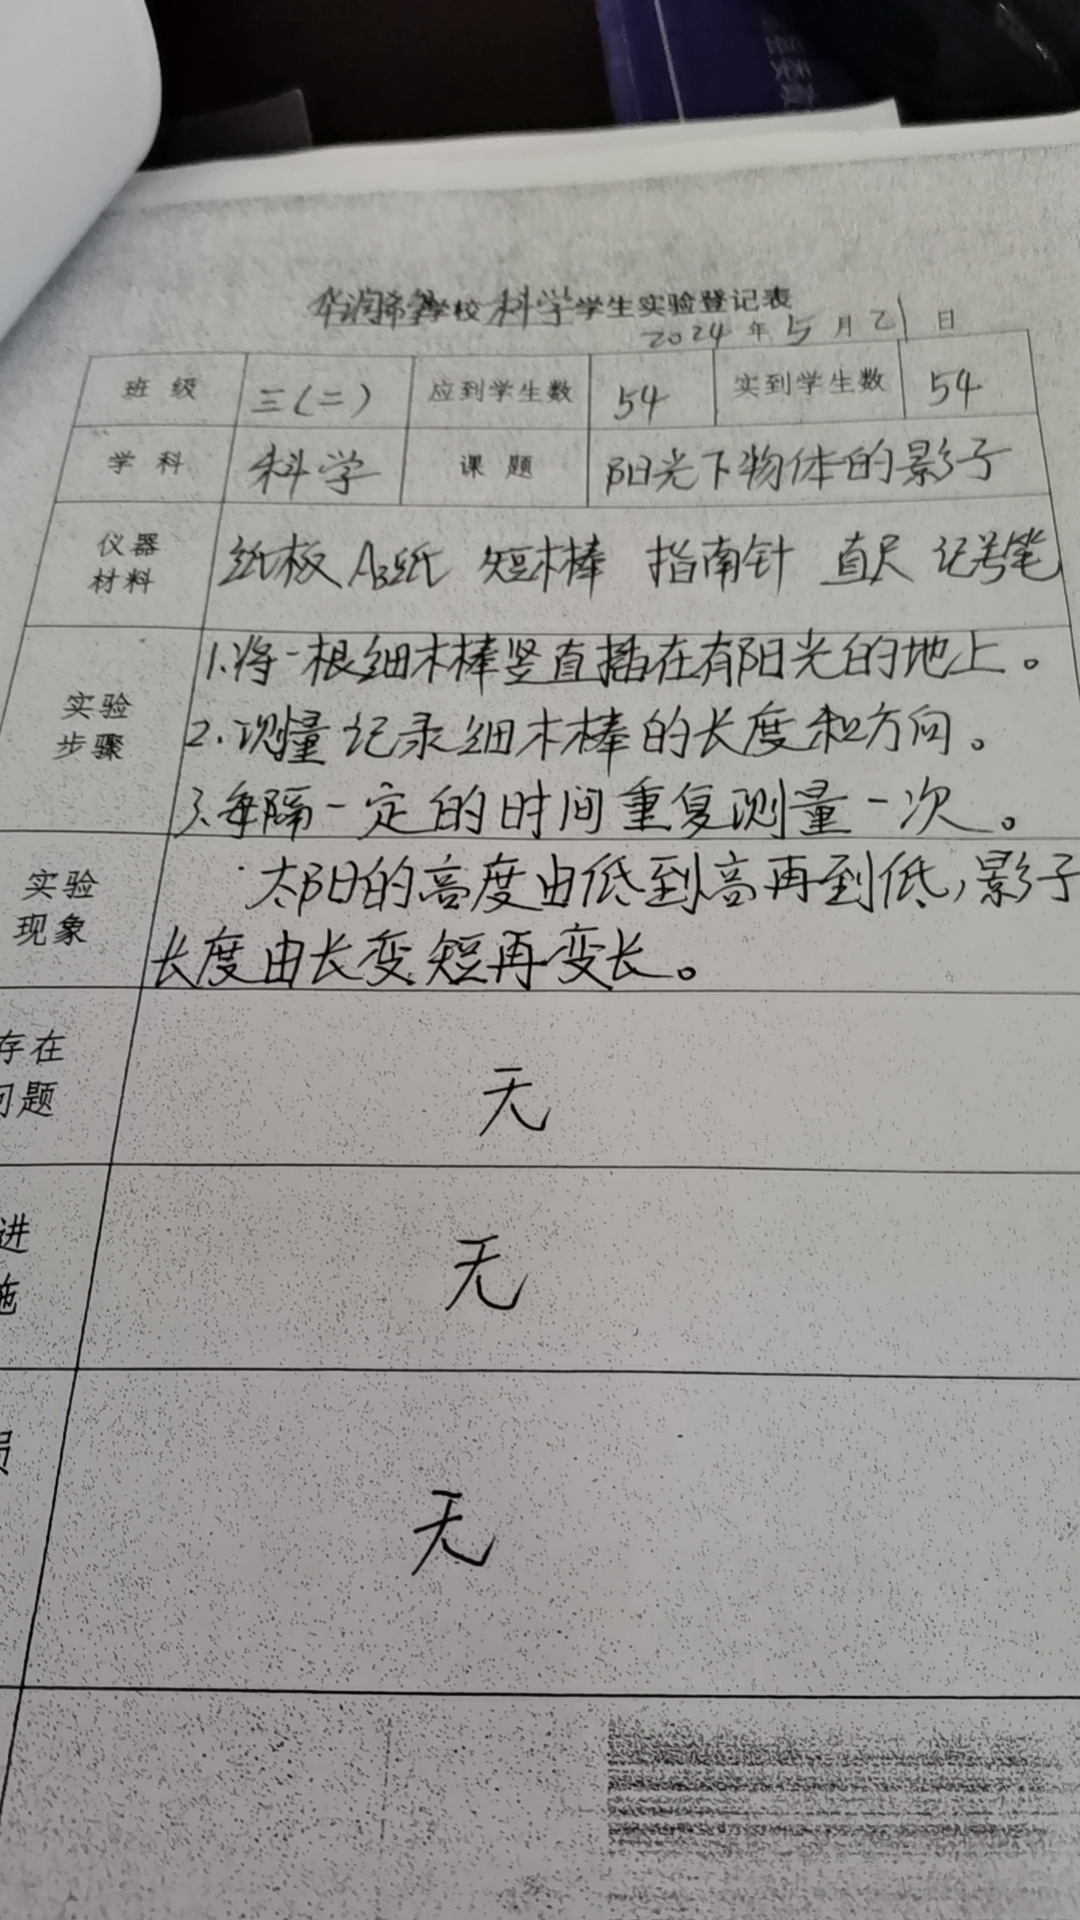 华润希望学校 科学 学生实验登记表
2024 年 5 月 21 日
班 级 三(二) 应到学生数 54 实到学生数 54
学 科 科学 课 题 阳光下物体的影子
仪器
材料
纸板 A3纸 短木棒 指南针 直尺 记号笔
实验
步骤
1.将一根细木棒竖直插在有阳光的地上。
2.测量记录细木棒的长度和方向。
3.每隔一定的时间重复测量一次。
实验
现象
太阳的高度由低到高再到低,影子
长度由长变短再变长。
存在
问题
无
进
施
无
损
无